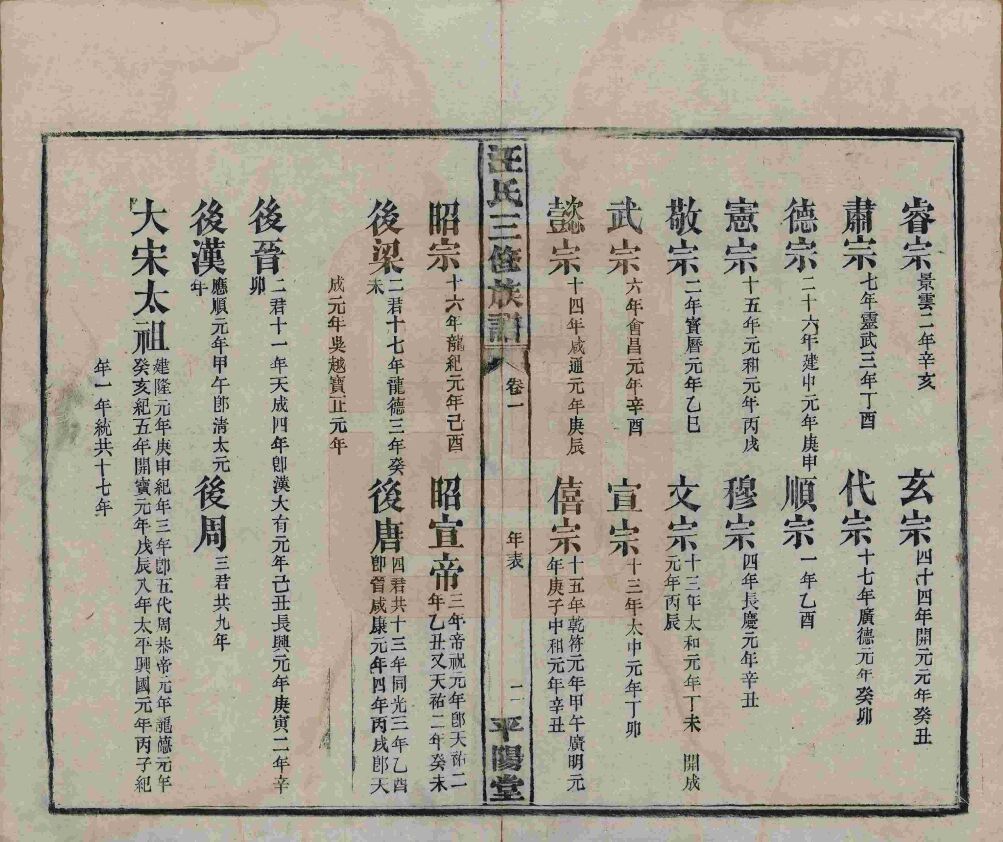 睿宗景雲二年辛亥
玄宗四十四年開元元年癸丑
肅宗七年靈武三年丁酉
代宗十七年廣德元年癸卯
德宗二十六年建中元年庚申
順宗一年乙酉
憲宗十五年元和元年丙戌
穆宗四年長慶元年辛丑
敬宗二年寶曆元年乙巳
文宗十三年太和元年丁未 開成
元年丙辰
武宗六年會昌元年辛酉
宣宗十三年大中元年丁卯
懿宗十四年咸通元年庚辰
僖宗十五年乾符元年甲午廣明元
年庚子中和元年辛丑
汪氏三修族譜
卷一
年表
二
平陽堂
昭宗十六年龍紀元年己酉
昭宣帝三年帝祝元年卽天祐二
年乙丑又天祐二年癸未
後梁二君十七年龍德三年癸
未
後唐四君共十三年同光三年乙酉
卽晉咸康元年四年丙戌卽天
成元年吳越寶正元年
後晉二君十一年天成四年卽漢大有元年己丑長興元年庚寅二年辛
卯
後漢應順元年甲午卽清太元
年
後周三君共九年
大宋太祖建隆元年庚申紀年三年卽五代周恭帝元年龍德元年
癸亥紀五年開寶元年戊辰八年太平興國元年丙子紀
年一年統共十七年